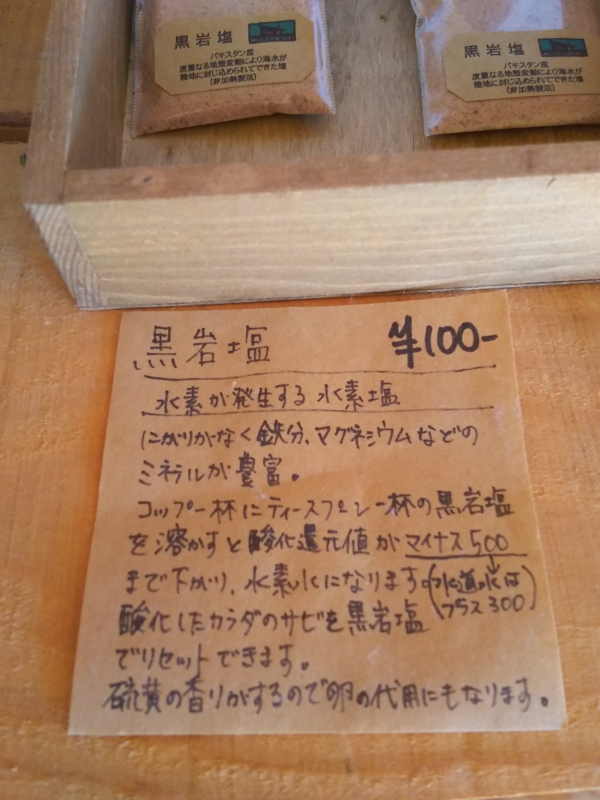 黒岩塩
パキスタン産
度重なる地殻変動により海水が
陸地に封じ込められてできた塩
(非加熱製法)
黒岩塩
パキスタン産
度重なる地殻変動により海水が
陸地に封じ込められてできた塩
(非加熱製法)
黒岩塩 ¥100-
水素が発生する 水素塩
にがりがなく鉄分、マグネシウムなどの
ミネラルが豊富。
コップ一杯にティースプーン一杯の黒岩塩
を溶かすと酸化還元値がマイナス500
まで下がり、水素水になります。(水道水は
プラス300)
酸化したカラダのサビを黒岩塩
でリセットできます。
硫黄の香りがするので卵の代用にもなります。